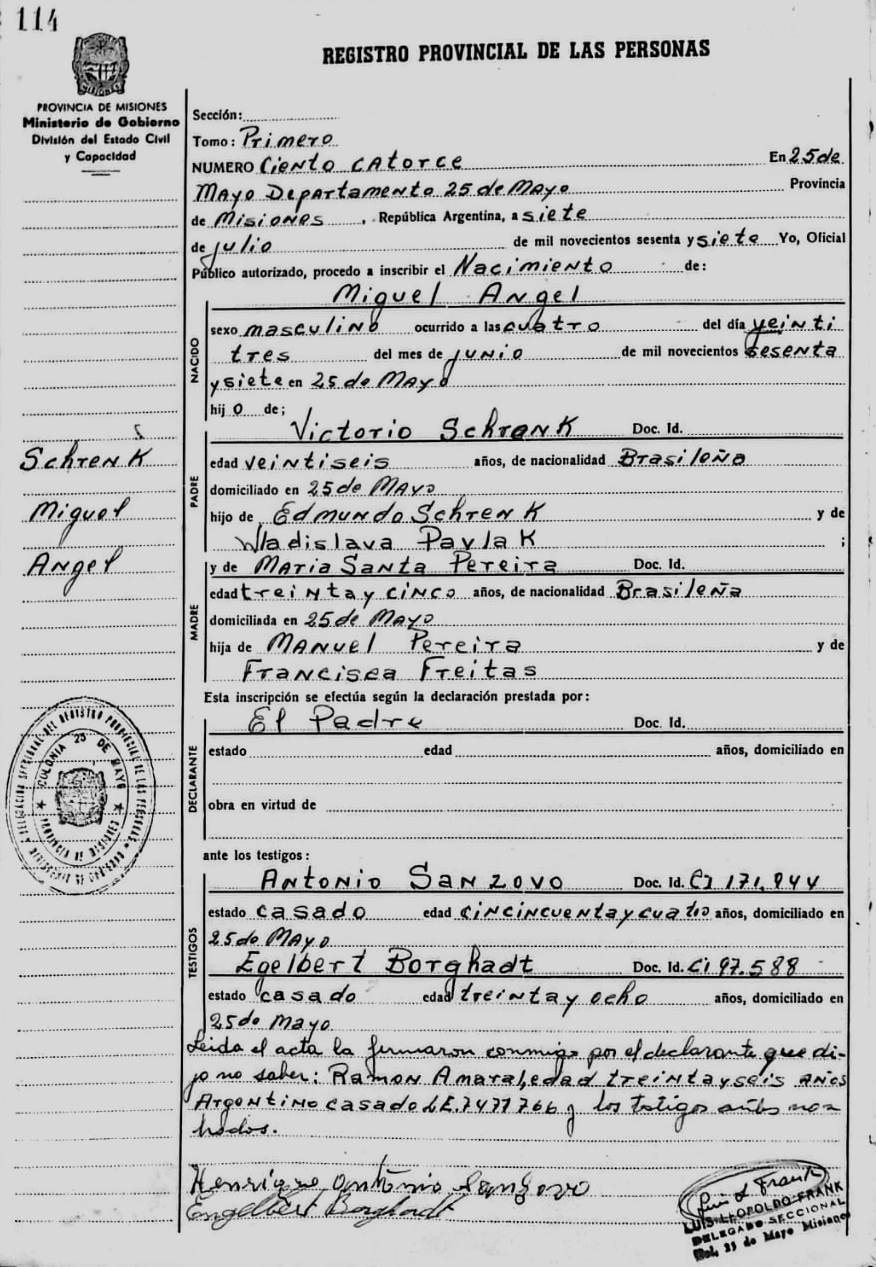 114
PROVINCIA DE MISIONES
Ministerio de Gobierno
División del Estado Civil
y Capacidad
REGISTRO PROVINCIAL DE LAS PERSONAS
Sección:
Tomo: Primero
NUMERO Ciento CAtorce En 25 de
MAyo DepArtamento 25 de MAyo Provincia
de Misiones, República Argentina, a siete
de julio de mil novecientos sesenta y siete Yo, Oficial
Público autorizado, procedo a inscribir el Nacimiento de:
Miguel Angel
NACIDO
sexo masculino ocurrido a las cuatro del día veinti
tres del mes de junio de mil novecientos sesenta
y siete en 25 de MAyo
hijo de;
PADRE
Victorio Schrenk Doc. Id.
edad veintiseis años, de nacionalidad Brasileña
domiciliado en 25 de MAyo
hijo de Edmundo Schrenk y de
Wladislava Pavlak ;
Schrenk
Miguel
Angel
MADRE
y de Maria Santa Pereira Doc. Id.
edad treinta y cinco años, de nacionalidad Brasileña
domiciliada en 25 de Mayo
hija de Manuel Pereira y de
Francisca Freitas
Esta inscripción se efectúa según la declaración prestada por:
DECLARANTE
El Padre Doc. Id.
estado edad años, domiciliado en
obra en virtud de
COLONIA 25 DE MAYO
ante los testigos:
TESTIGOS
Antonio Sanzovo Doc. Id. CI 171.944
estado casado edad cincincuenta y cuatro años, domiciliado en
25 de Mayo
Egelbert Borghadt Doc. Id. CI 97.588
estado casado edad treinta y ocho años, domiciliado en
25 de Mayo
Leida el acta la firmaron conmigo por el declarante que di-
jo no saber: Ramon Amaral, edad treinta y seis años
Argentino casado L.E. 7477766 y los testigos antes nom
brados.
Henrique Antonio Sanzovo
Engelbert Borghardt
Luis L Frank
LUIS LEOPOLDO FRANK
DELEGADO SECCIONAL
Col. 25 de Mayo Misiones